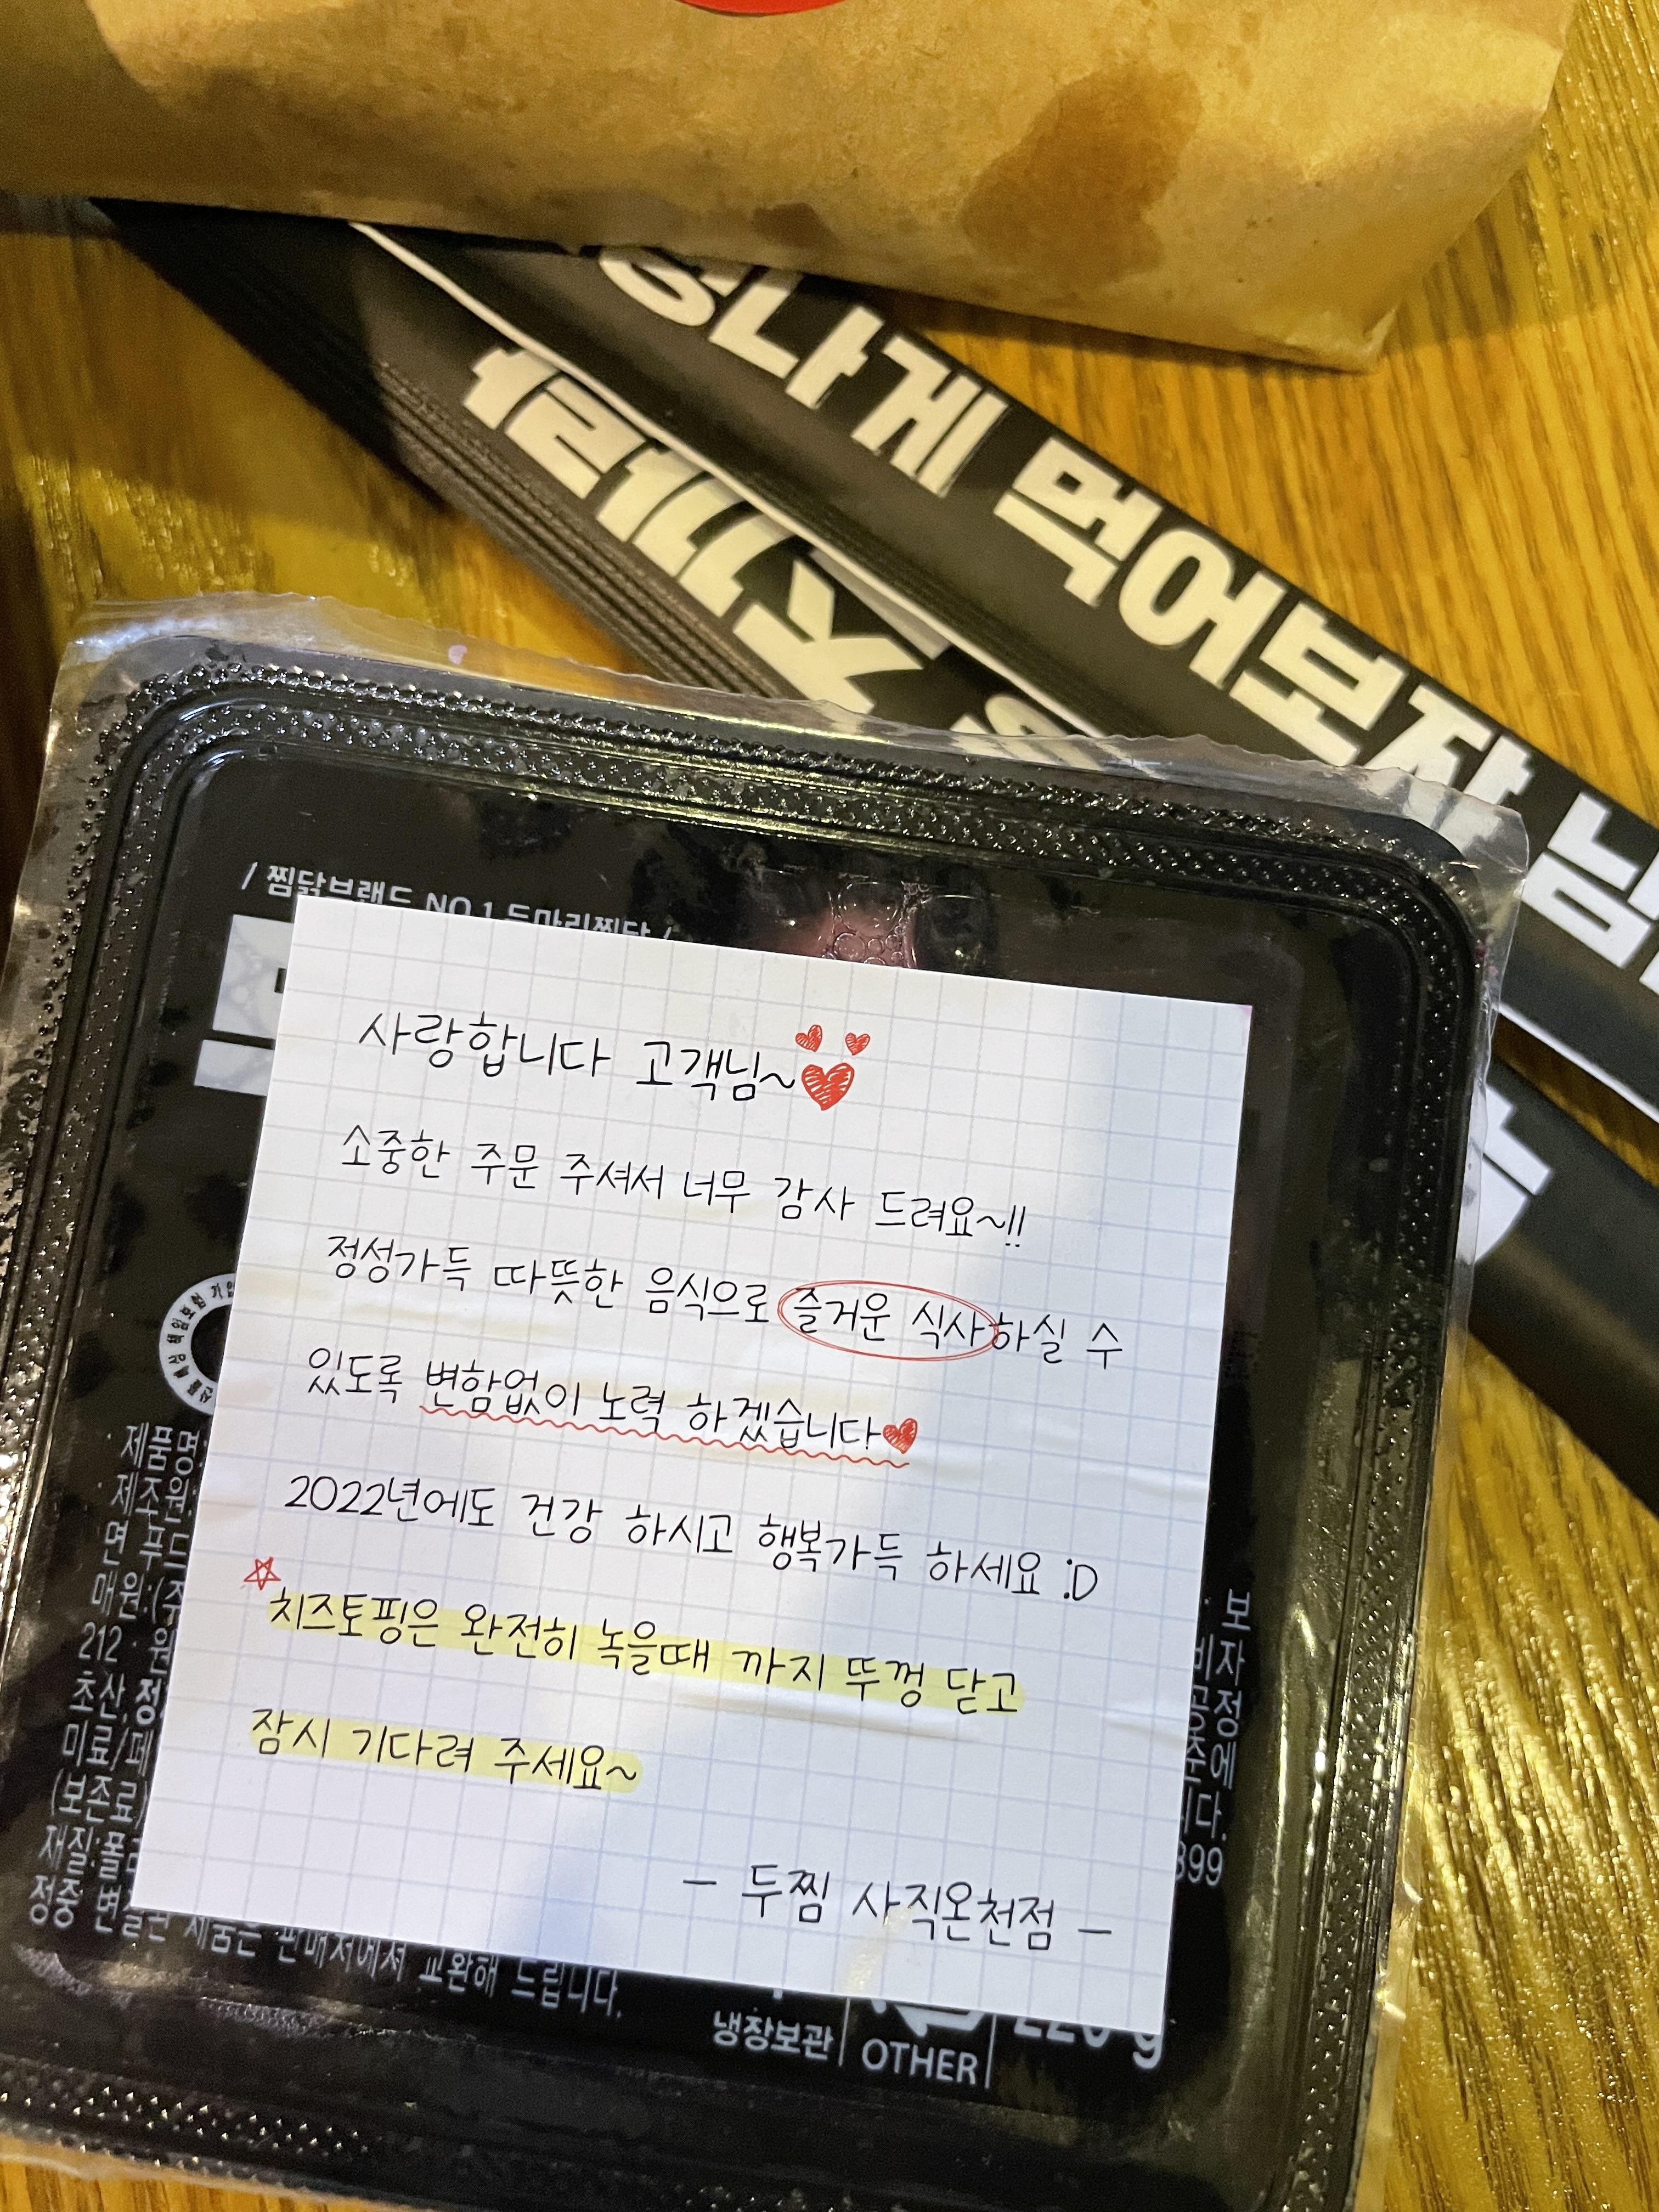 나게 먹어보자
/ 찜닭브랜드 NO.1 두마리찜닭 /
사랑합니다 고객님~
소중한 주문 주셔서 너무 감사 드려요~!!
정성가득 따뜻한 음식으로 즐거운 식사하실 수
있도록 변함없이 노력 하겠습니다
2022년에도 건강 하시고 행복가득 하세요 :D
치즈토핑은 완전히 녹을때 까지 뚜껑 닫고
잠시 기다려 주세요~
- 두찜 사직온천점 -
책임보험
제품명:
제조원
212
정중
제품은 판매처에서 교환해 드립니다.
냉장보관
OTHER